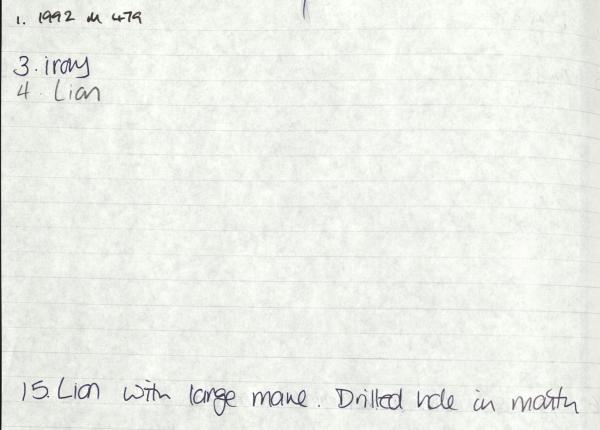 1. 1992 M 479
3. irory
4. Lion
15. Lion with large mane. Drilled hole in mouth